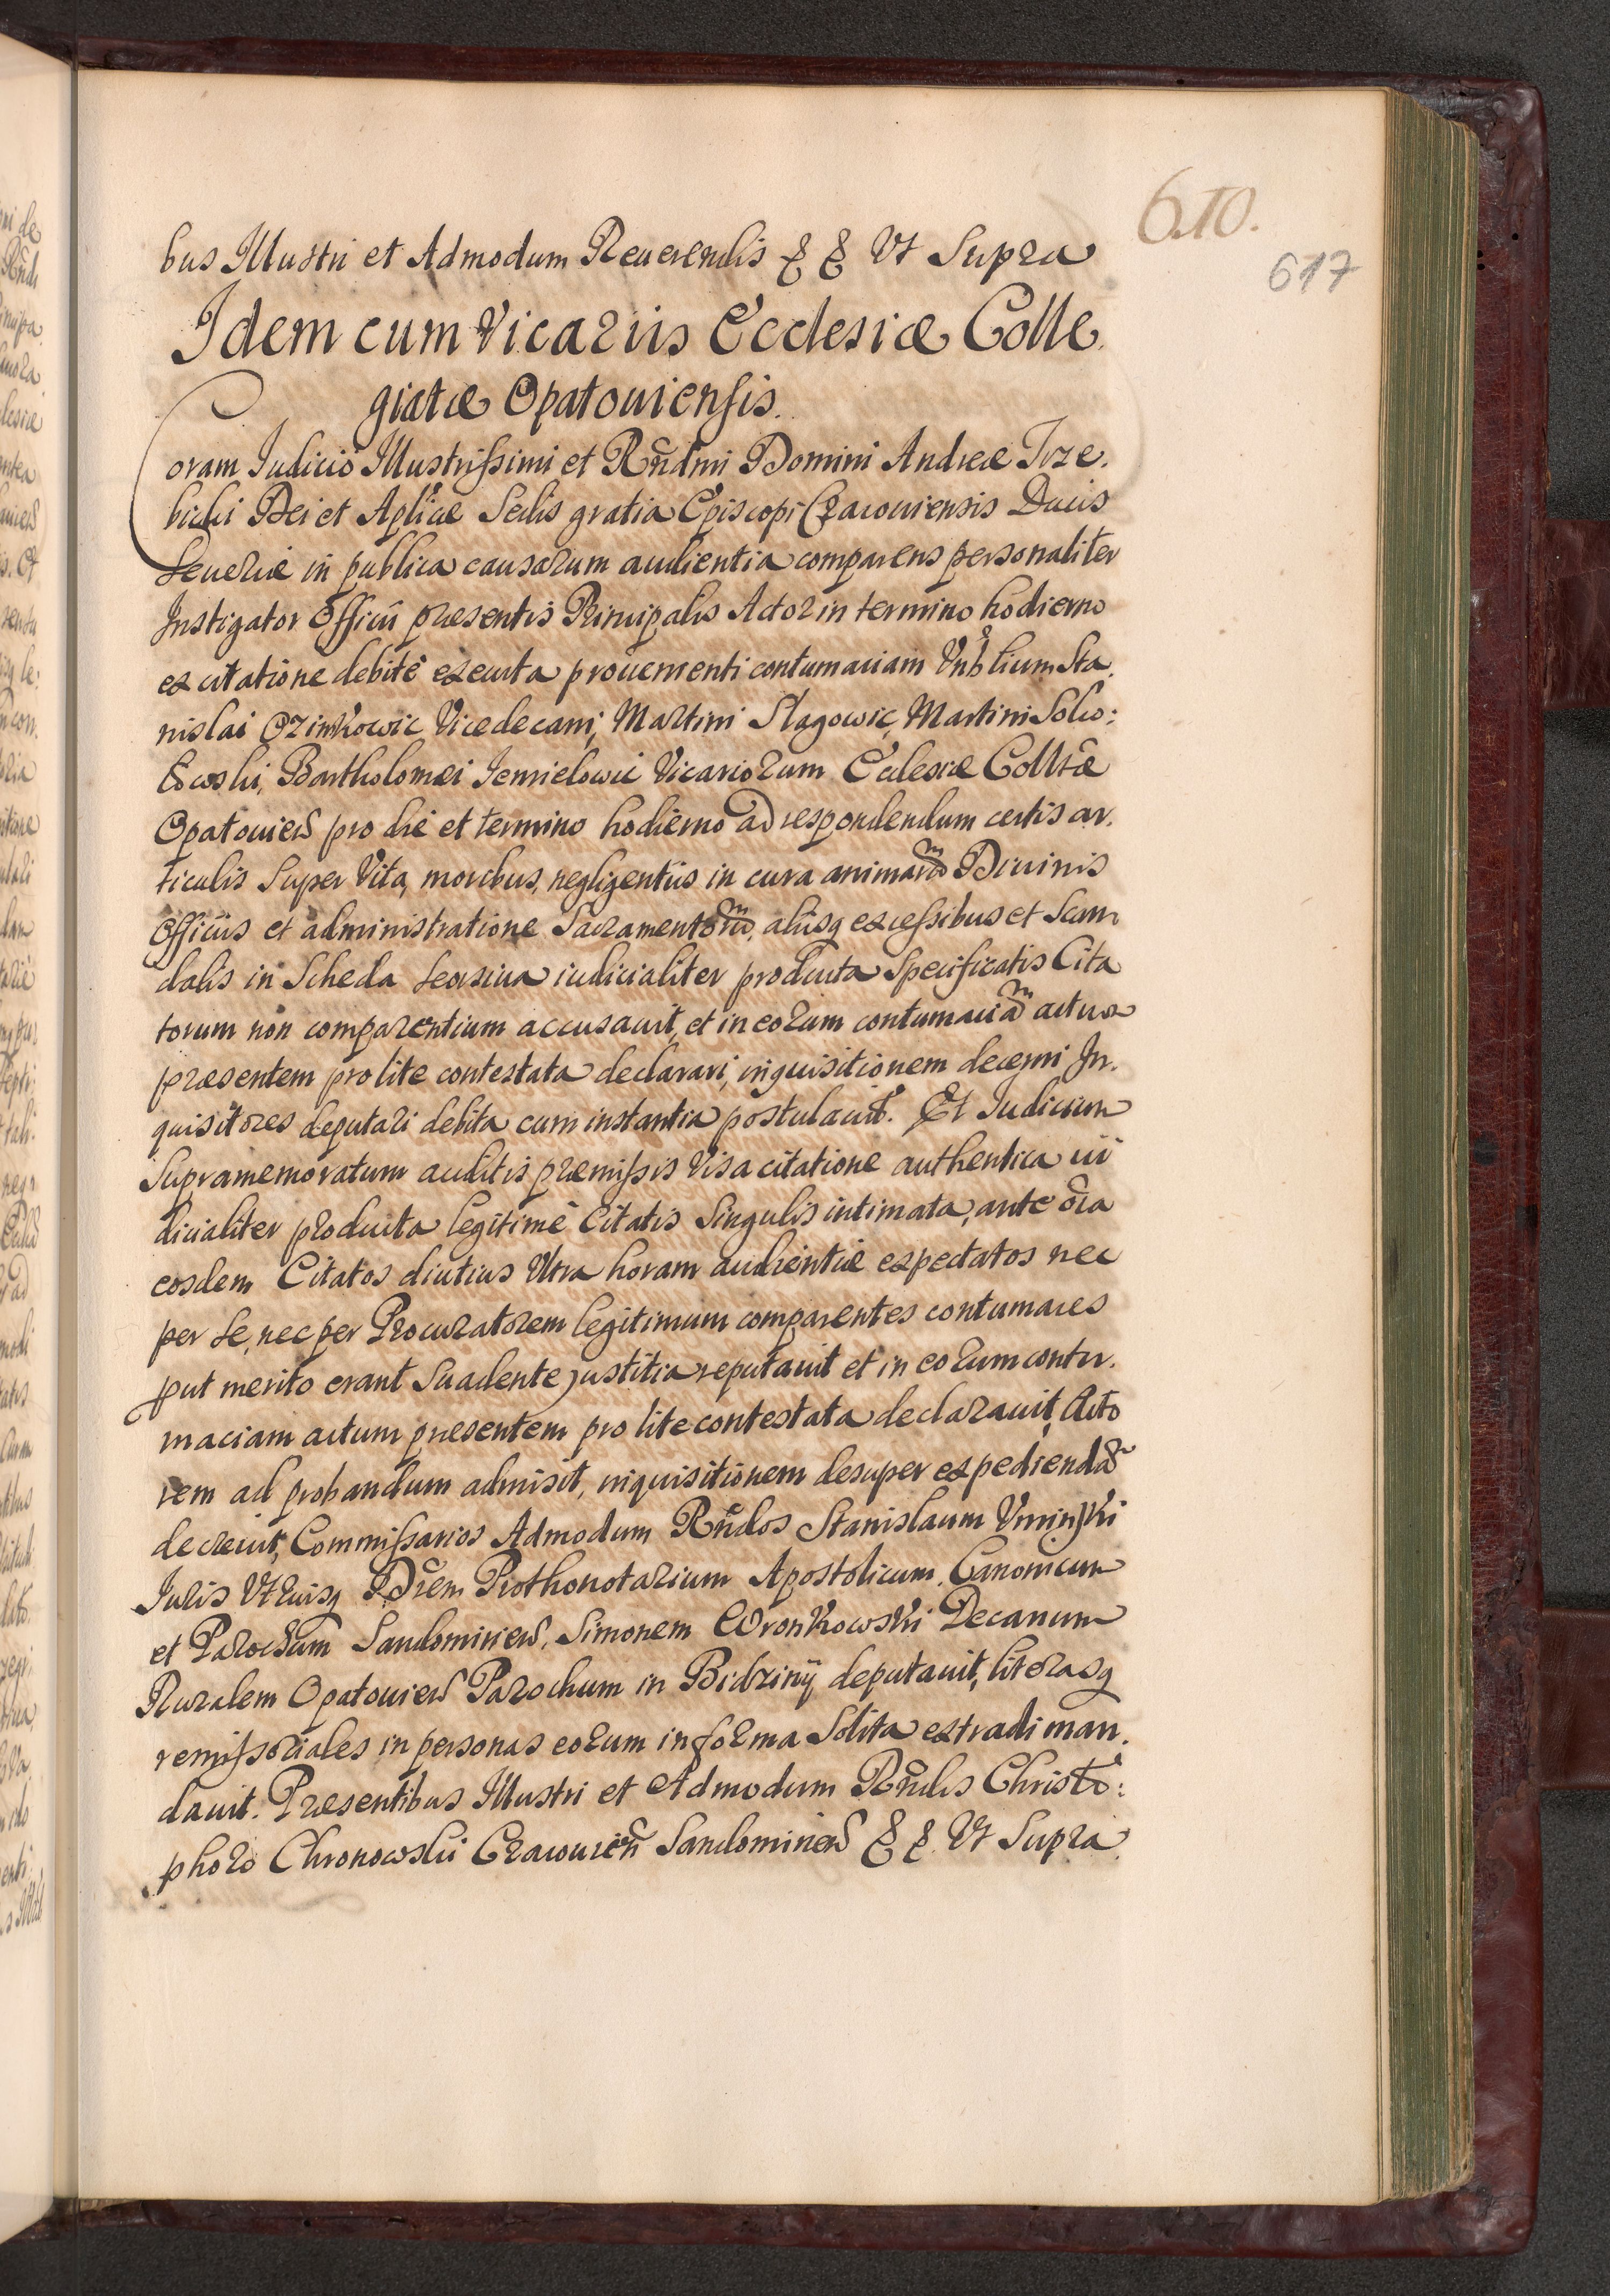 610.
617
bus Illustri et Admodum Reuerendis & & Vt Supra
Idem cum Vicariis Ecclesiæ Colle
giatæ Opatouiensis.
Coram Iudicio Illustrissimi et Rñdmi Domini Andreæ Trze.
bicki Dei et Aplicæ Sedis gratia Episcopi Cracouiensis Ducis
Seueriæ in publica causarum audientia comparens personaliter
Instigator Officii præsentis Principalis Actor in termino hodierno
ex citatione debitè executa prouenienti contumaciam Vnblium Sta
nislai Ozinkowic Vicedecani, Martini Slagowic, Martini
Bartholomei Vicariorum Ecclesiæ Colltæ
Opatouieñ pro die et termino hodierno ad respondendum certis ar.
ticulis Super Vita, moribus, negligentiis in cura animarũ Diuinis
Officiis et administratione Sacramentorũ, aliisq excessibus et Scan
dalis in Scheda Seorsiua iudicialiter producta Specificatis Cita
torum non comparentium accusauit, et in eorum contumaciã actum
præsentem pro lite contestata declarari, inquisitionem decerni In.
quisitores deputari debita cum instantia postulauit. Et Iudicium
Supramemoratum auditis præmissis Visa citatione authentica iu
dicialiter producta legitimè Citatis Singulis intimata, ante oĩa
eosdem Citatos diutius Vltra horam audientiæ expectatos nec
per Se, nec per Procuratorem legitimum comparentes contumaces
put merito erant Suadente justitia reputauit et in eorum contu.
maciam actum præsentem pro lite contestata declarauit, Acto
rem ad probandum admisit, inquisitionem desuper expediendã
decreuit, Commissarios Admodum Rñdos Stanislaum Vminski
Iuris Vtriusq Drem Prothonotarium Apostolicum, Canonicum
et Parochum Sandomirieñ, Simonem Wronkowski Decanum
Ruralem Opatouieñ Parochum in Bidziny deputauit, literasq
remissoriales in personas eorum in forma Solita extradi man.
dauit. Præsentibus Illustri et Admodum Rñdis Christo:
phoro Chronowski Cracouieñ Sandomirieñ & &. Vt Supra